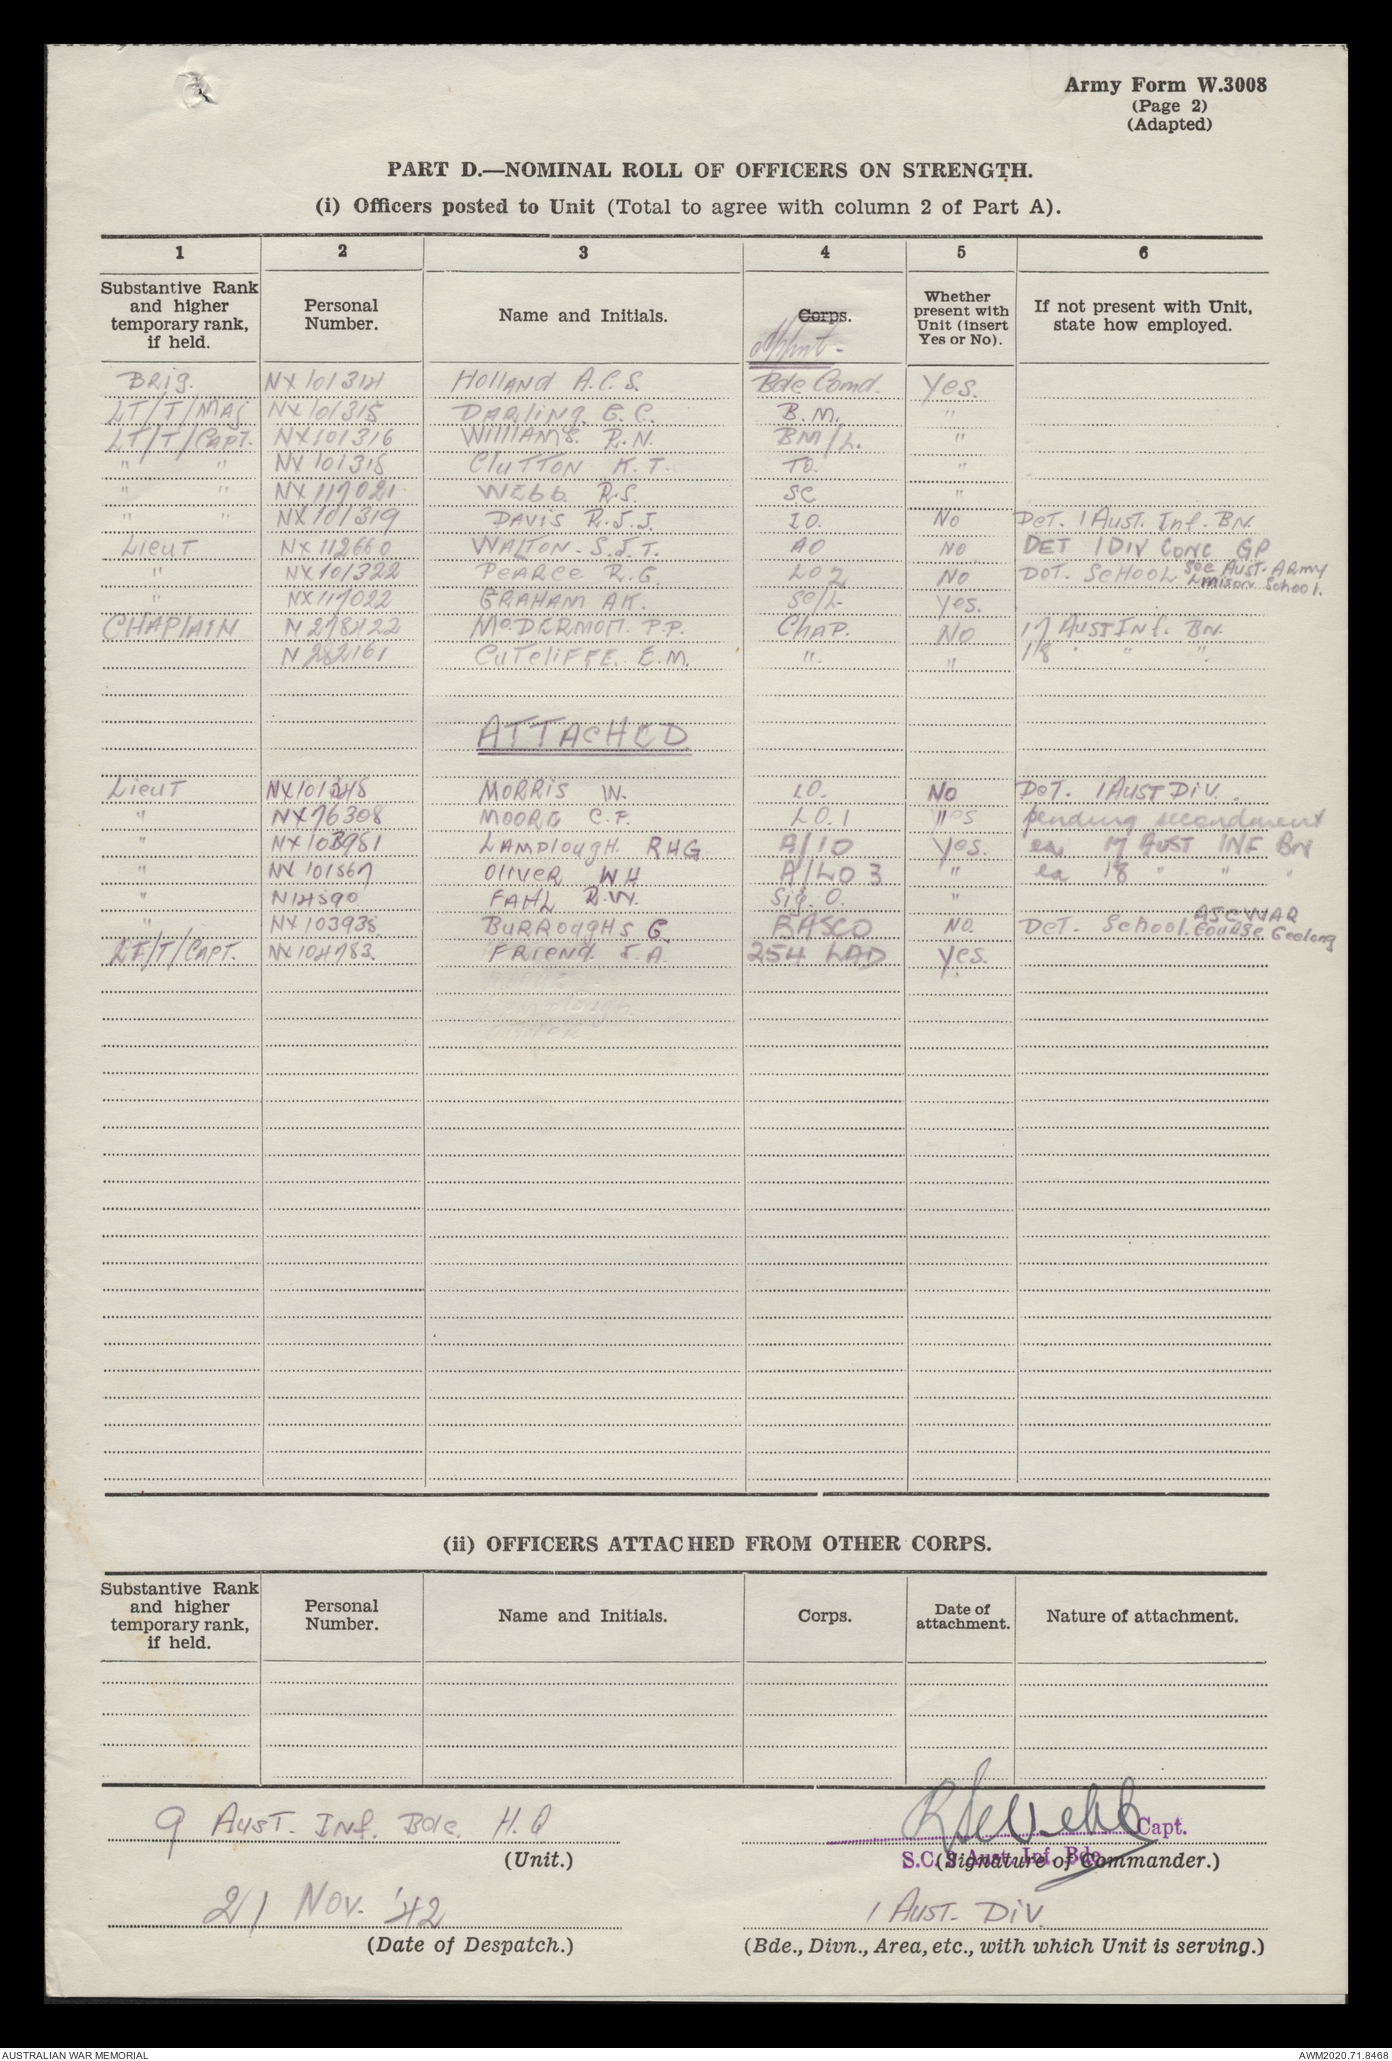 Army Form W.3008
(Page 2)
(Adapted)
PART D.—NOMINAL ROLL OF OFFICERS ON STRENGTH.
(i) Officers posted to Unit (Total to agree with column 2 of Part A).
1 2 3 4 5 6
Substantive Rank and higher temporary rank, if held. Personal Number. Name and Initials. Corps. Whether present with Unit (insert Yes or No). If not present with Unit, state how employed.
Appmt.
Brig. NX101314 Holland A.C.S. Bde Comd. Yes.
LT/T/Maj NX101315 Darling. E.C. B.M. "
LT/T/Capt. NX101316 Williams. R.N. BM/L. "
" " NX101318 Clutton K.T. TO. "
" " NX117021 Webb. R.S. SC "
" " NX101319 Davis R.J.J. IO. No Det. 1 Aust. Inf. Bn.
Lieut NX112660 Walton. S.J.T. AO No DET 1 DIV CONC GP
" NX101322 Pearce R.G. LO2 No Det. School See Aust. Army Liaison School.
" NX117022 GRAHAM AK. SC/L. Yes.
CHAPLAIN N278422 McDERMOTT. P.P. Chap. No 17 Aust Inf. Bn.
N282161 Cutcliffe. E.M. ". " 18 " " ".
ATTACHED
Lieut NX101248 MORRIS W. LO. No Det. 1 Aust Div.
" NX76308 MOORE C.F. LO.1 Yes pending secondment
" NX103981 LAMPLOUGH. RHG A/IO Yes. ea 17 AUST INF BN
" NX101567 OLIVER WH A/LO 3 " ea 18 " " "
" N14590 FAHL R.W. Sig. O. "
" NX103938 BURROUGHS G. BASCO No. Det. School. ASCWAR COURSE Geelong
LT/T/CAPT. NX104783. FRIEND. J.A. 254 LAD Yes.
(ii) OFFICERS ATTACHED FROM OTHER CORPS.
Substantive Rank and higher temporary rank, if held. Personal Number. Name and Initials. Corps. Date of attachment. Nature of attachment.
9 Aust. Inf. Bde. H.Q
RSWebb Capt.
(Unit.) S.C. 9 Aust. Inf. Bde. (Signature of Commander.)
21 Nov. '42 1 Aust. Div.
(Date of Despatch.) (Bde., Divn., Area, etc., with which Unit is serving.)
AUSTRALIAN WAR MEMORIAL AWM2020.71.8468